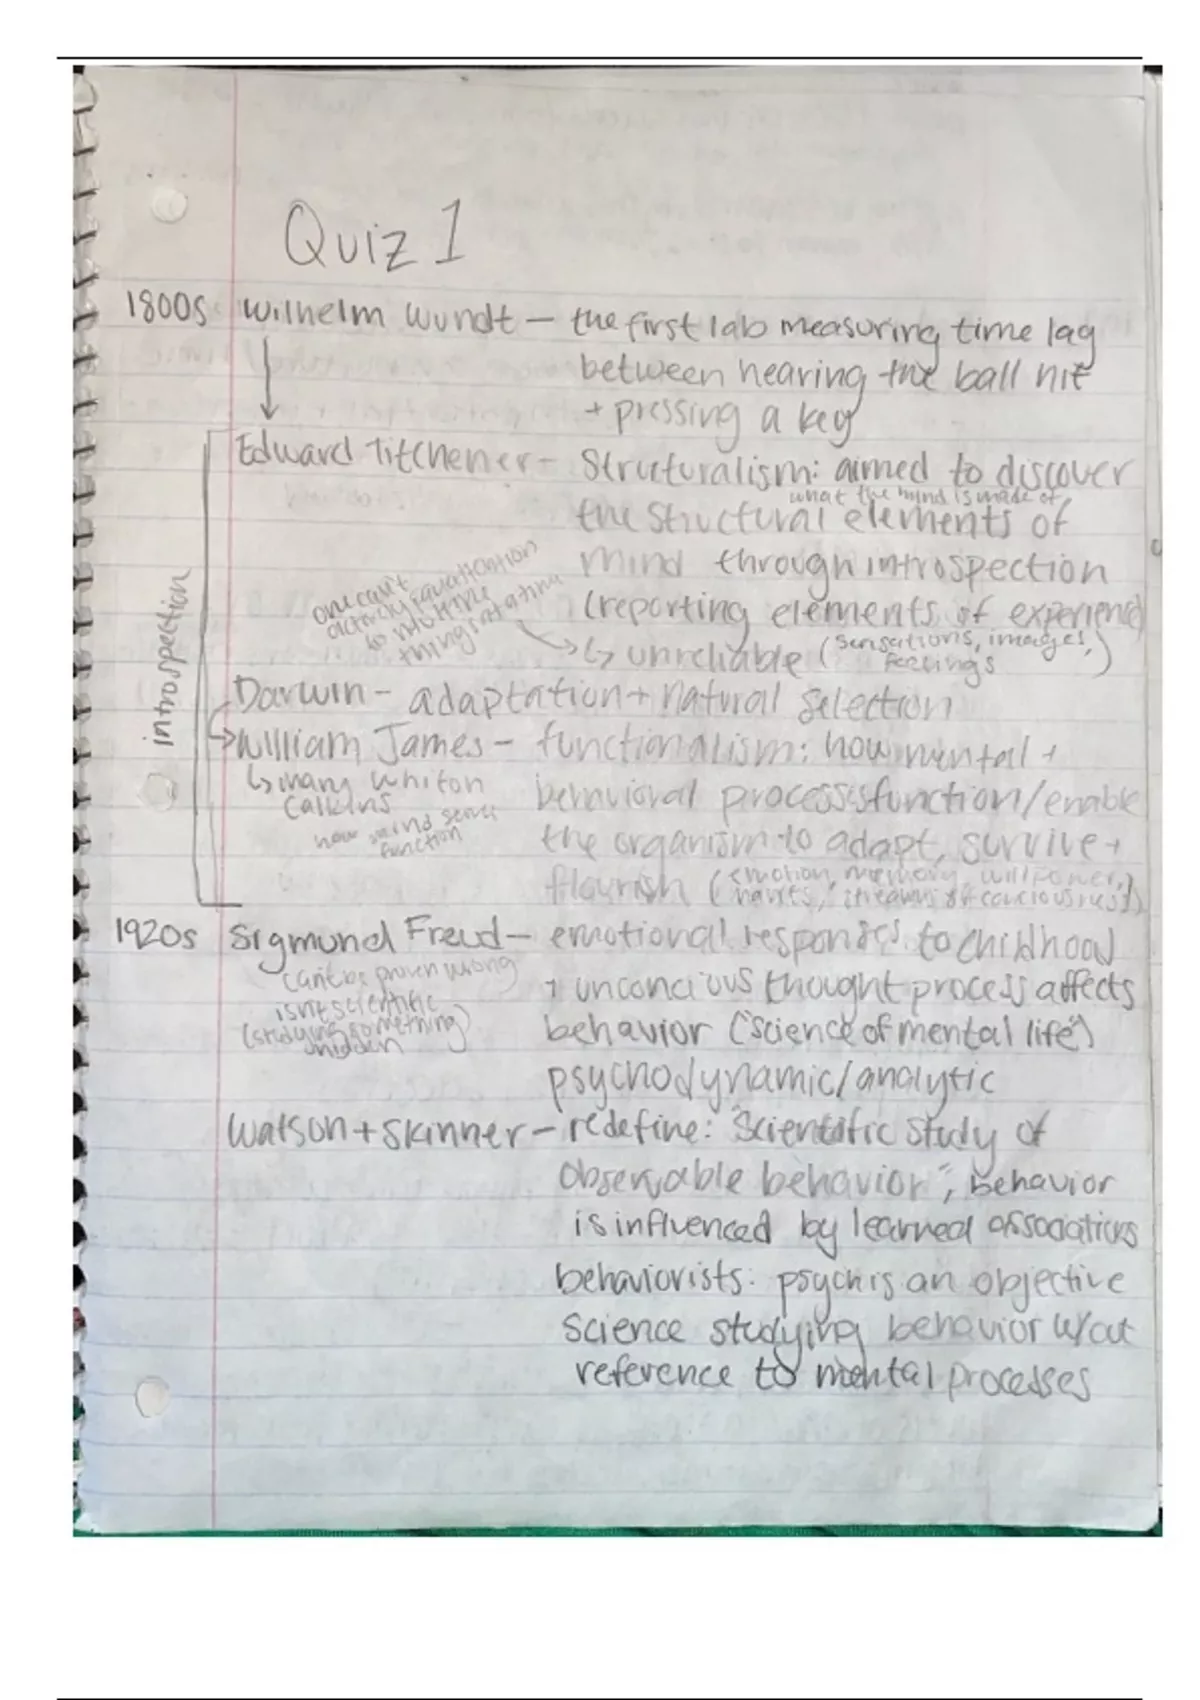 Quiz 1
1800s Wilhelm Wundt — the first lab measuring time lag
between hearing the ball hit
+ pressing a key
Edward Titchener - Structuralism: aimed to discover
what the mind is made of
the structural elements of
mind through introspection
(reporting elements of experience)
one can't
actively pay attention
to multiple
things at a time
↳ unreliable (sensations, images,
feelings)
introspection
Darwin - adaptation + natural selection
William James - functionalism: how mental +
↳ Mary Whiton
Calkins
behavioral processes function/enable
how mind serves
function
the organism to adapt, survive +
flourish (emotion, memory, willpower,
habits, streams of conciousness)
1920s Sigmund Freud — emotional responses to childhood
can't be proven wrong
isnt scientific
(studying something
hidden)
+ unconcious thought process affects
behavior ("science of mental life")
psychodynamic/analytic
Watson + Skinner - redefine: "Scientific study of
observable behavior", behavior
is influenced by learned associations
behaviorists: psych is an objective
science studying behavior w/out
reference to mental processes